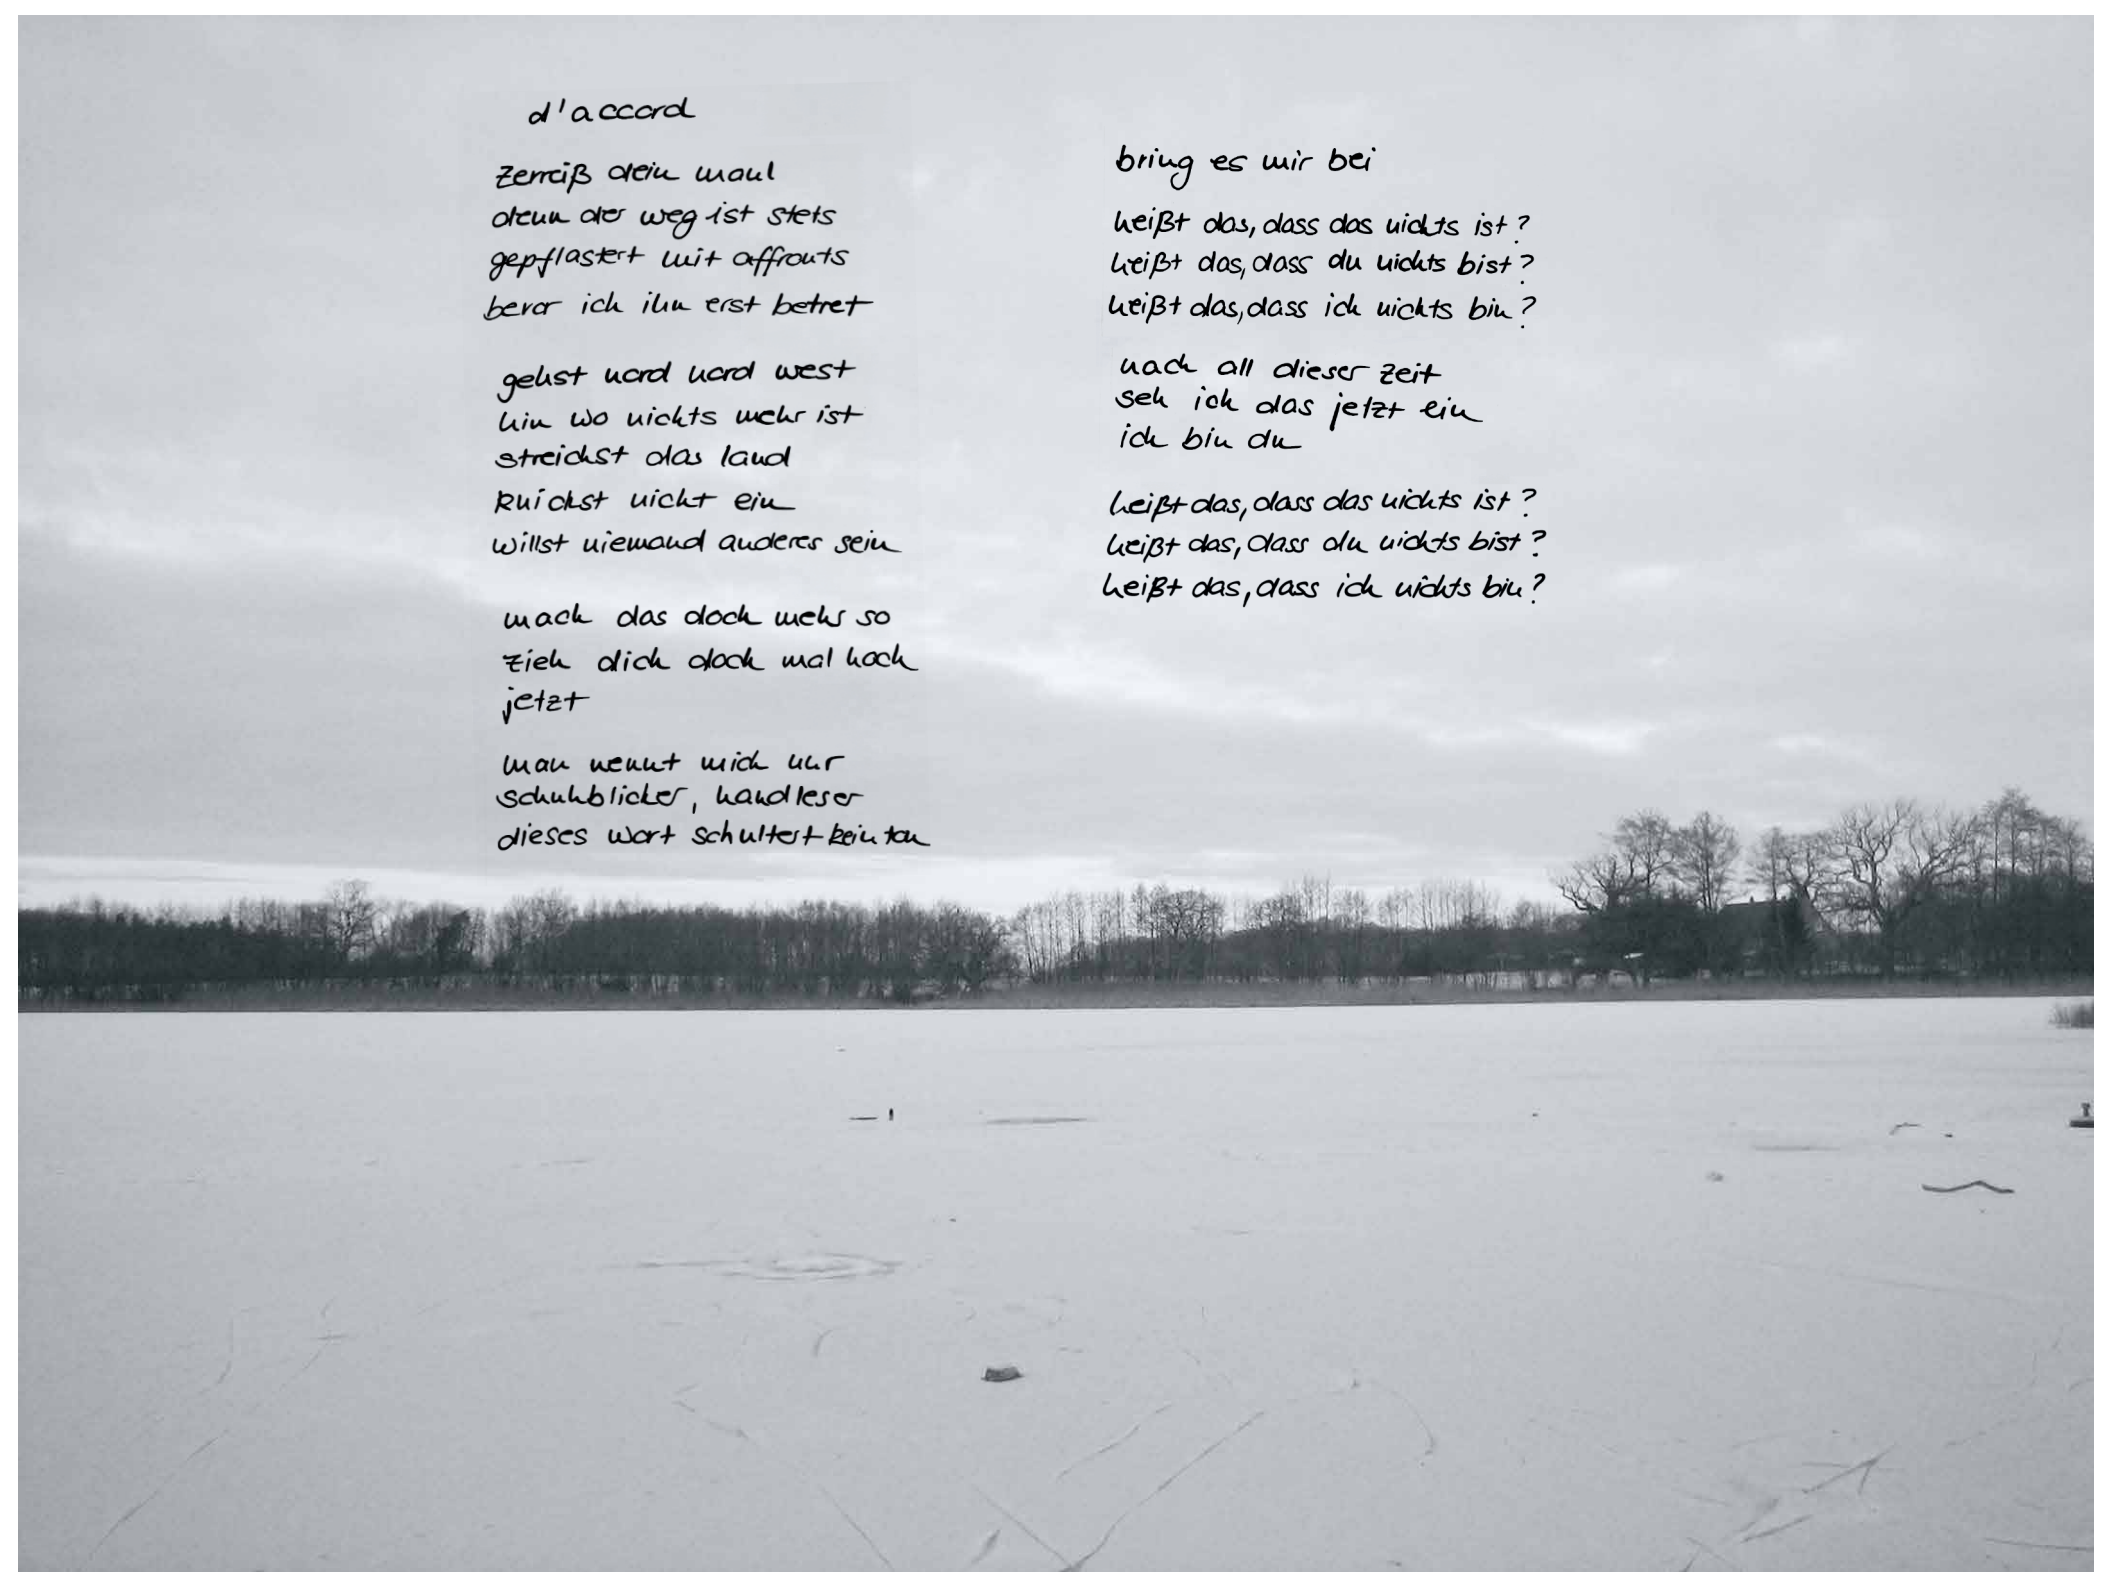 d'accord
zerreiß dein maul
denn der weg ist stets
gepflastert mit affronts
bevor ich ihn erst betret
gehst nord nord west
hin wo nichts mehr ist
streichst das land
knickst nicht ein
willst niemand anderes sein
mach das doch mehr so
zieh dich doch mal hoch
jetzt
man nennt mich nur
schuhblicker, handleser
dieses wort schultert kein ton
bring es mir bei
heißt das, dass das nichts ist?
heißt das, dass du nichts bist?
heißt das, dass ich nichts bin?
nach all dieser zeit
seh ich das jetzt ein
ich bin du
heißt das, dass das nichts ist?
heißt das, dass du nichts bist?
heißt das, dass ich nichts bin?